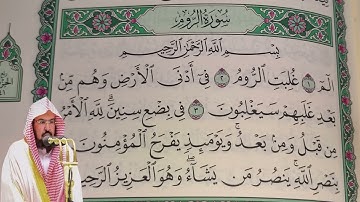 سُورَةُ الرُّومِ
بِسْمِ اللَّهِ الرَّحْمَٰنِ الرَّحِيمِ
الٓمٓ ١ غُلِبَتِ الرُّومُ ٢ فِىٓ أَدْنَى الْأَرْضِ وَهُم مِّنۢ
بَعْدِ غَلَبِهِمْ سَيَغْلِبُونَ ٣ فِى بِضْعِ سِنِينَ ۗ لِلَّهِ الْأَمْرُ
مِن قَبْلُ وَمِنۢ بَعْدُ ۚ وَيَوْمَئِذٍ يَفْرَحُ الْمُؤْمِنُونَ
بِنَصْرِ اللَّهِ ۚ يَنصُرُ مَن يَشَآءُ ۖ وَهُوَ الْعَزِيزُ الرَّحِيمُ